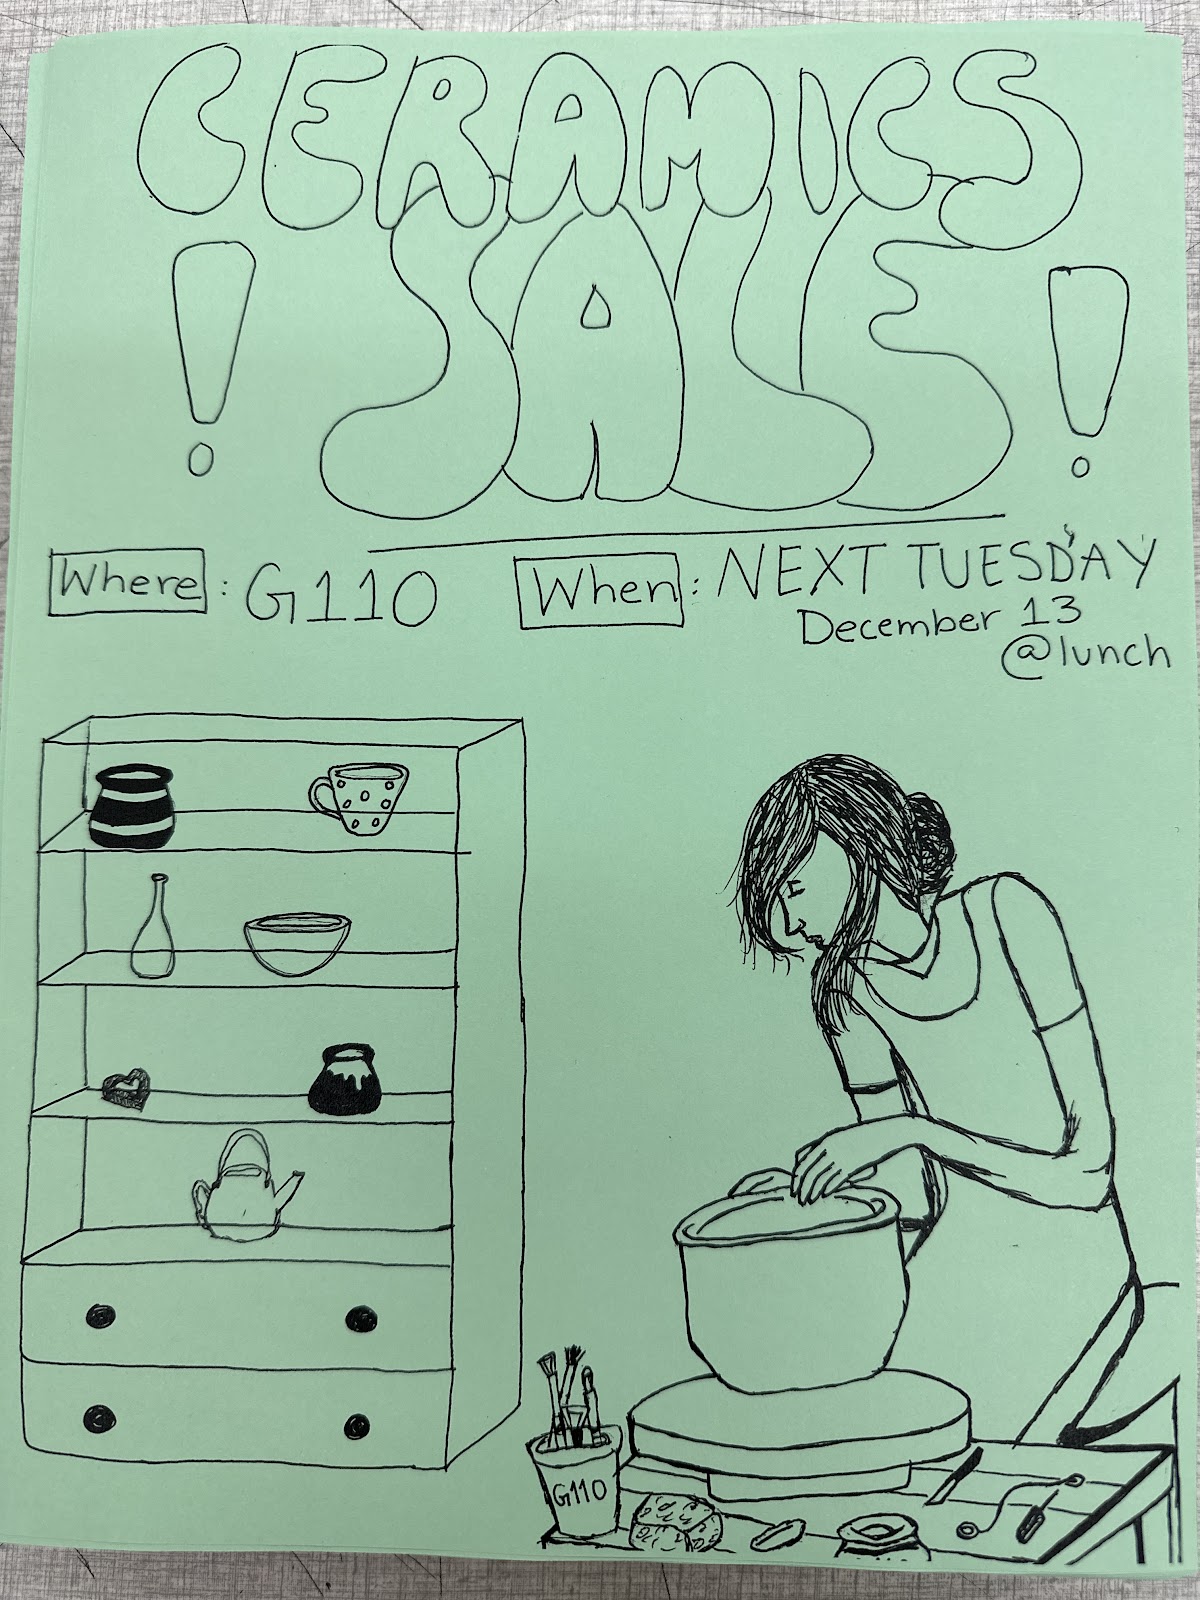 CERAMICS
! SALE !
Where: G110
When: NEXT TUESDAY
December 13
@lunch
G110